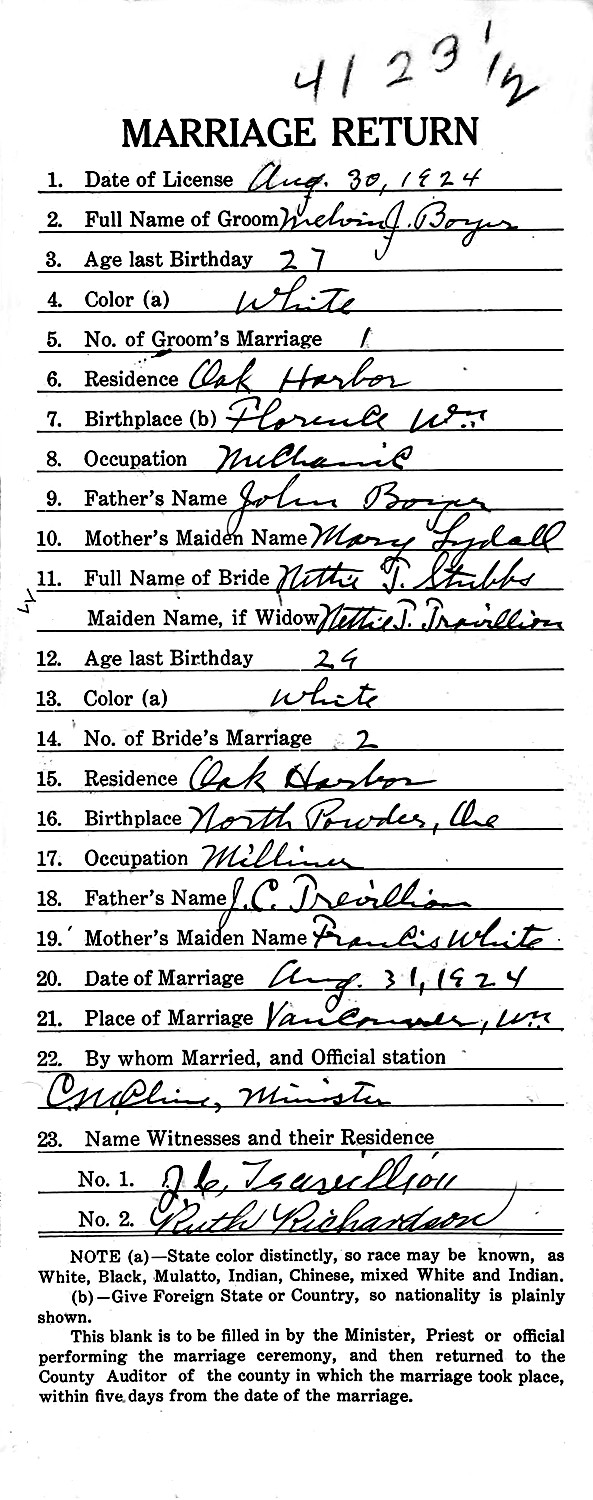 4123 1/2
MARRIAGE RETURN
1. Date of License Aug. 30, 1924
2. Full Name of Groom Melvin J. Boyer
3. Age last Birthday 27
4. Color (a) White
5. No. of Groom's Marriage 1
6. Residence Oak Harbor
7. Birthplace (b) Florence Wn
8. Occupation Mechanic
9. Father's Name John Boyer
10. Mother's Maiden Name Mary Lydall
11. Full Name of Bride Nettie T. Stubbs
Maiden Name, if Widow Nettie T. Travillion
12. Age last Birthday 29
13. Color (a) White
14. No. of Bride's Marriage 2
15. Residence Oak Harbor
16. Birthplace North Powder, Ore
17. Occupation Milliner
18. Father's Name J.C. Trevillian
19. Mother's Maiden Name Francis White
20. Date of Marriage Aug. 31, 1924
21. Place of Marriage Vancouver, Wn.
22. By whom Married, and Official station
Cline, Minister
23. Name Witnesses and their Residence
No. 1. J C, Travillion
No. 2. Ruth Richardson
NOTE (a)—State color distinctly, so race may be known, as
White, Black, Mulatto, Indian, Chinese, mixed White and Indian.
(b)—Give Foreign State or Country, so nationality is plainly
shown.
This blank is to be filled in by the Minister, Priest or official
performing the marriage ceremony, and then returned to the
County Auditor of the county in which the marriage took place,
within five days from the date of the marriage.